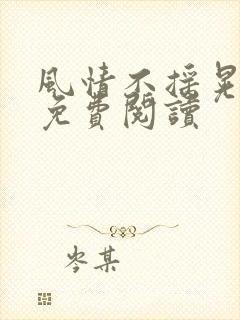 風情不搖晃
免費閱讀
岑某